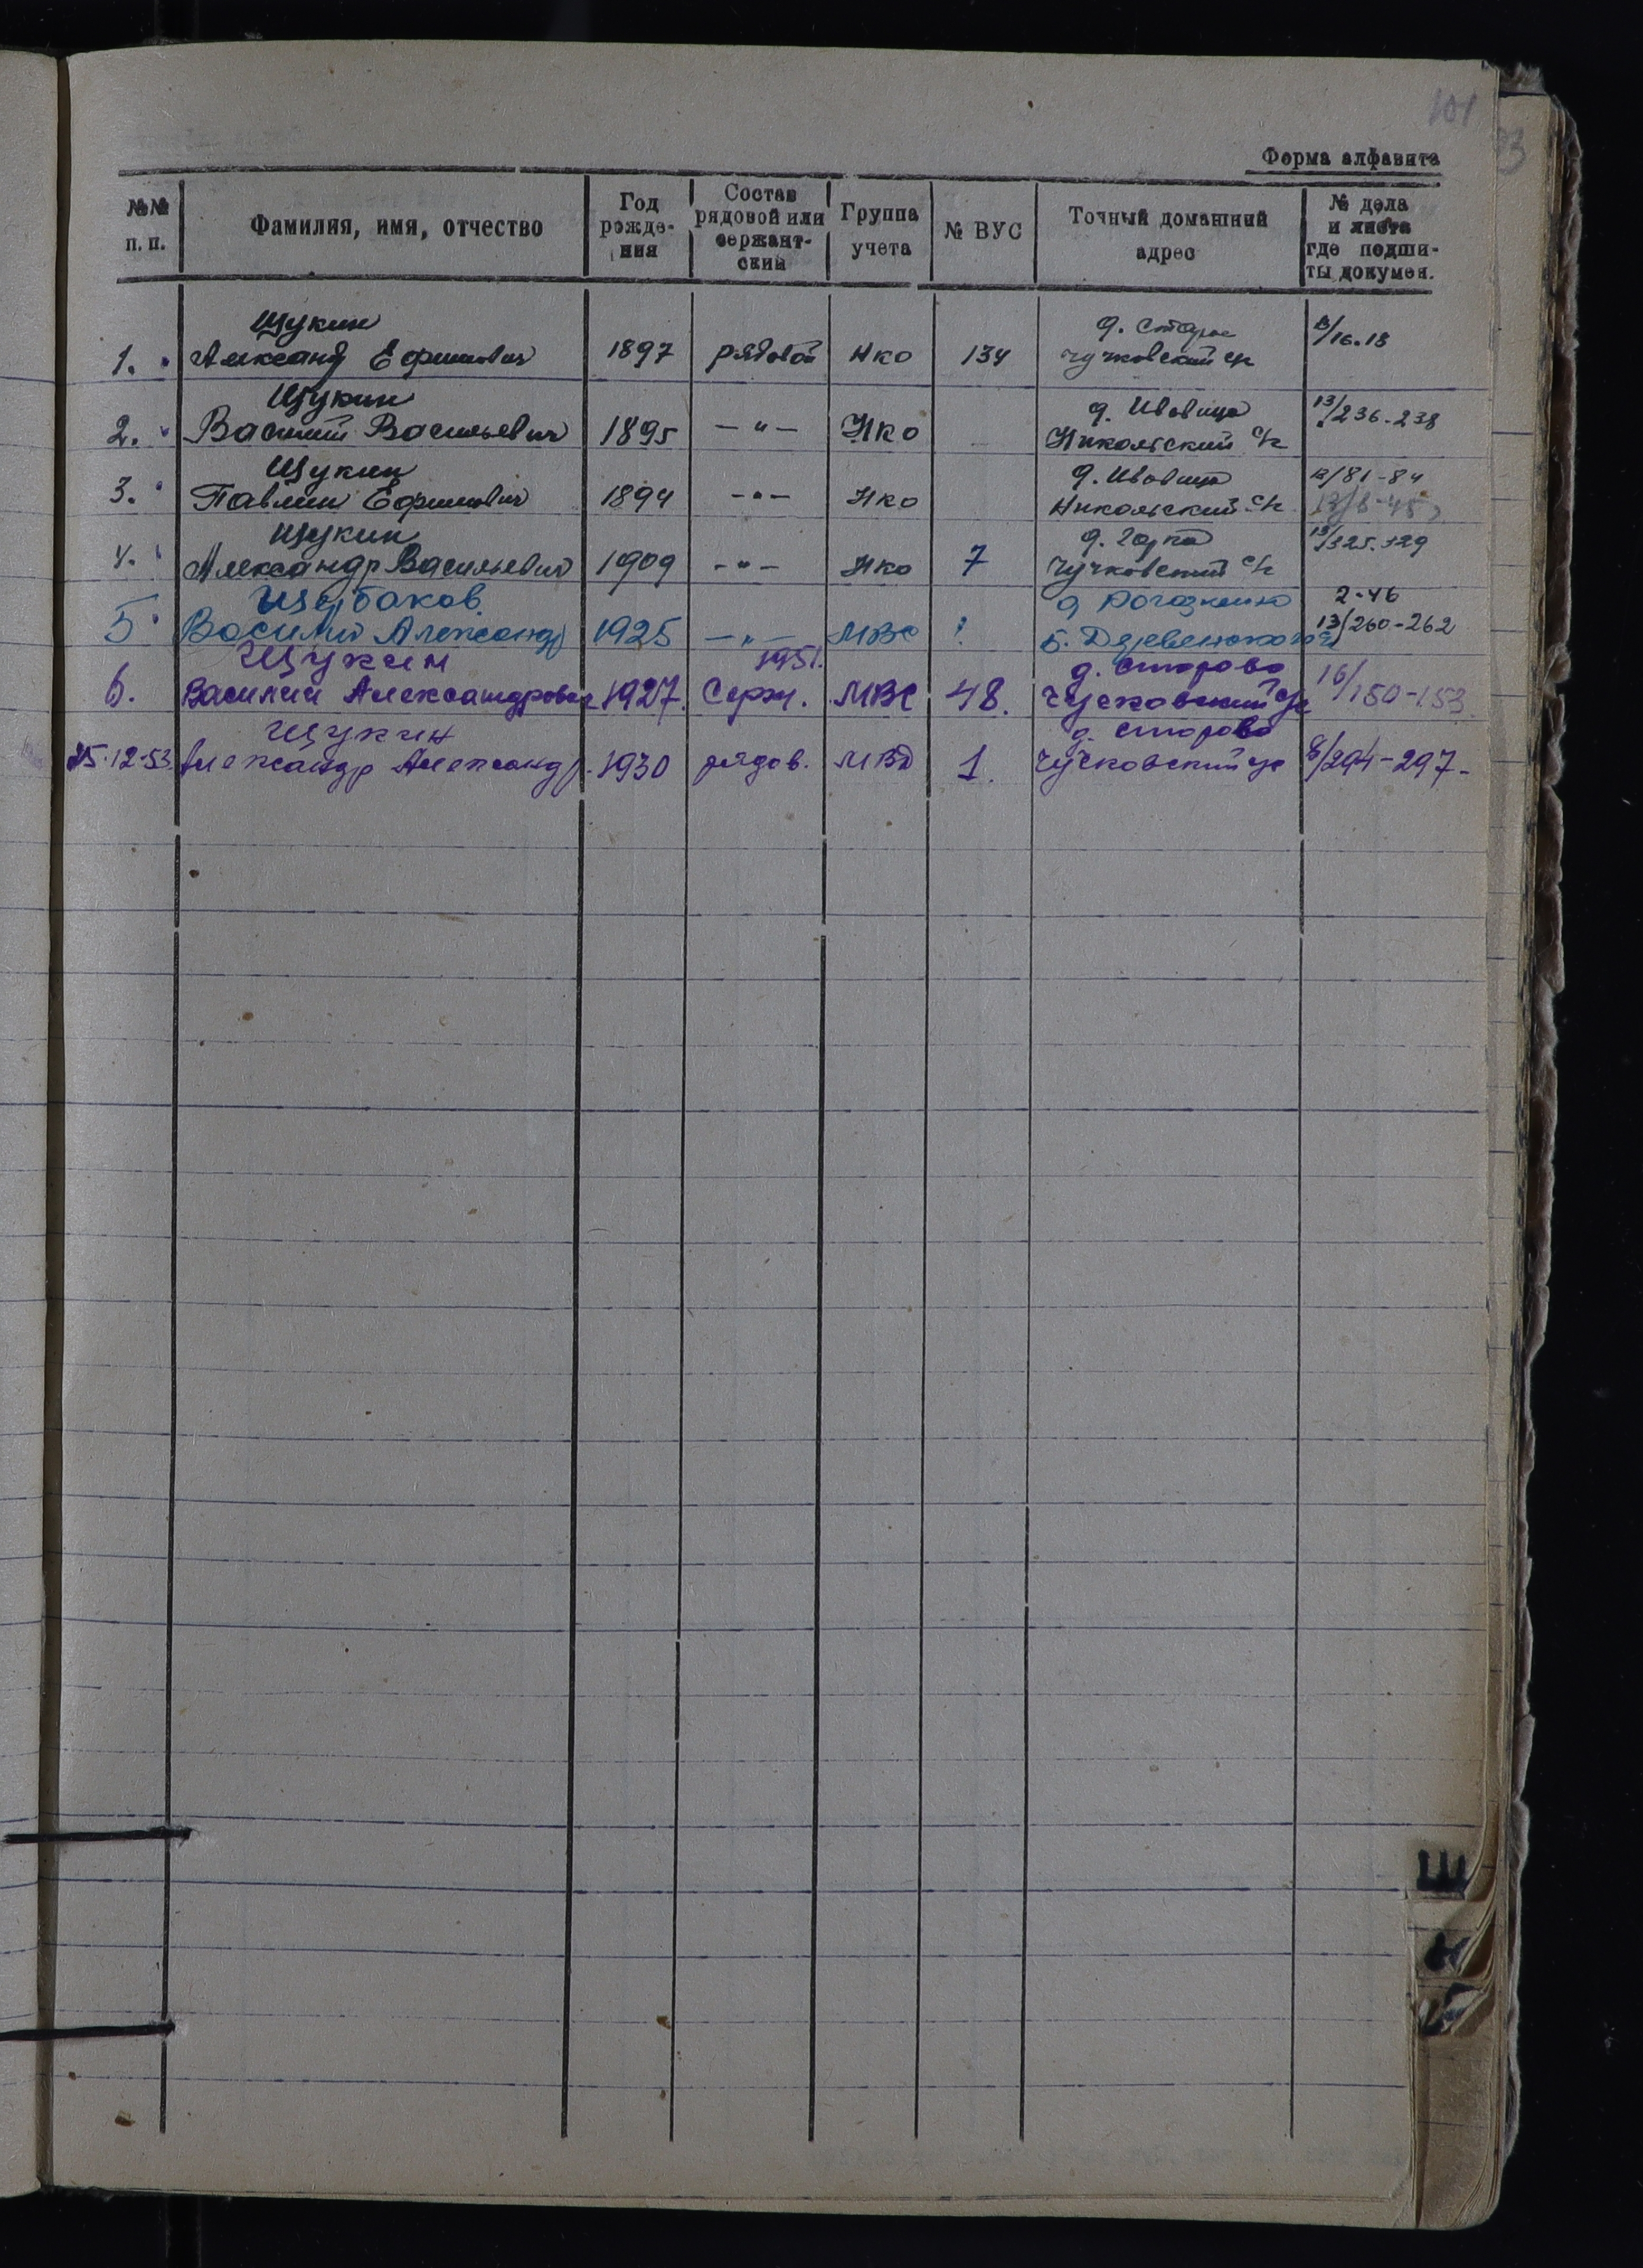 101
Форма алфавита
№№ п. п.
Фамилия, имя, отчество
Год рожде- ния
Состав рядовой или сержант- ский
Группа учета
№ ВУС
Точный домашний адрес
№ дела и листа где подши- ты докумен.
Щукин д. Старое
1. Александ Ефимович 1897 рядовой Нко 134 Чучковский с/с /16.18
Щукин д. Ивовица
2. Василий Васильевич 1895 —"— Нко Никольский с/с 13/236-238
Щукин д. Ивовица /81-84
3. Павлин Ефимович 1894 —"— Нко Никольский с/с
Щукин д. Горка
4. Александр Васильевич 1909 —"— Нко 7 Чучковский с/с 13/325-329
Щербаков д 2-46
5 Василий Александр 1925 —"— МВС ? Б. 13/260-262
Щукин 1951. д. Старово
6. Василий Александрович 1927. Серж. МВС 48. Чучковский с/с 16/150-153
Щукин д. Старово
25.12.53. Александр Александр. 1930 рядов. МВД 1. Чучковский с/с 8/294-297-